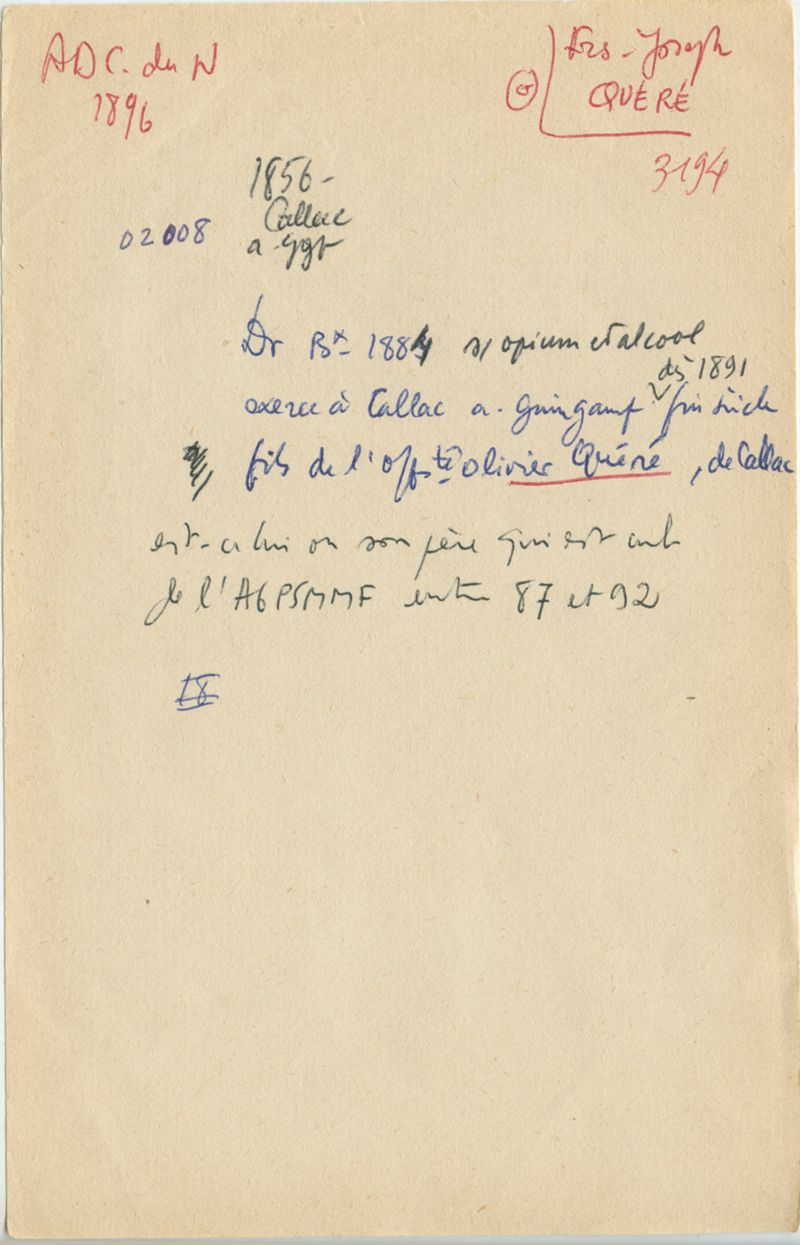 ADC. du N
1896
Frs-Joseph
QUÉRÉ
3194
1856-
Callac
a. ggt
02008
Dr Bx 1884 s/ opium et alcool
dès 1891
exerce à Callac a. Guingamp fin siècle
fils de l'offste Olivier Quéré, de Callac
est-ce lui ou son père qui est cité
de l'AGPSMMF entre 87 et 92
I8